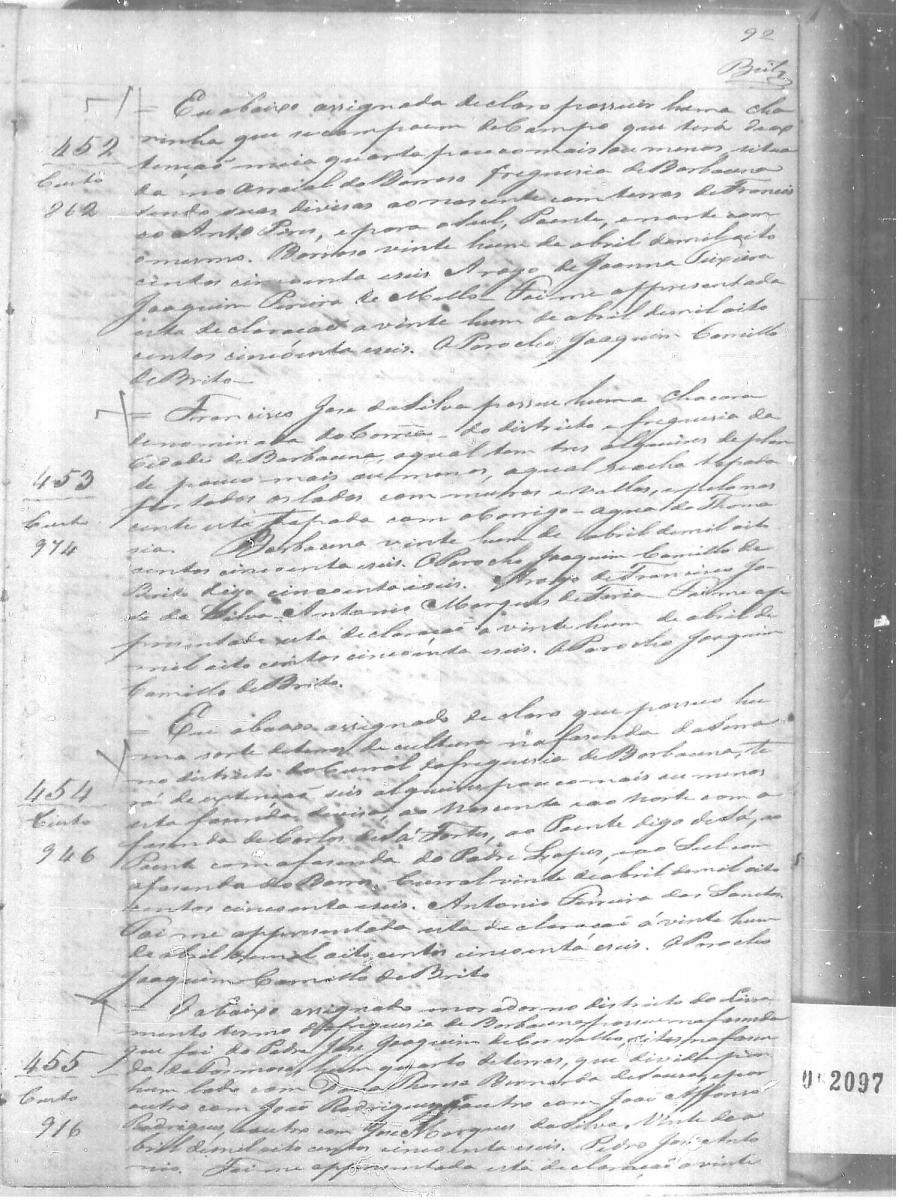 92
Brito
= Eu abaixo assignada declaro possuir huma cha
rinha que se compoem de Campo que terá de ex
tenção meia quarta pouco mais ou menos, situa
da no Arraial do Barroso freguesia de Barbacena
sendo suas divisas ao nascente com terras de Francis
co Antº Pires, e para o Sul, Poente, e norte com
o mesmo. Barroso vinte hum de abril de mil oito
centos cincoenta e seis. Arogo de Joanna Teixeira
Joaquim Pereira de Mello = Foi me appresentada
esta declaração a vinte hum de abril de mil oito
centos cincoenta e seis. O Parocho Joaquim Camillo
de Brito =
452
Custo
862
= Francisco Jose da Silva possue huma Chacara
denominada do Corrêa = do districto e freguesia da
Cidade de Barbacena, a qual tem tres alqueires de plan
ta pouco mais ou menos, a qual se acha tapada
por todos os lados com muros e vallos, e pelo nas
cente esta tapada com o Corrigo = agua da Thoma
sia. Barbacena vinte hum de abril de mil oito
centos cincoenta e seis. O Parocho Joaquim Camillo de
Brito digo cincoenta e seis. Arogo de Francisco Jo
se da Silva = Antonio Marques de Faria = Foi me ap
presentada esta declaração a vinte hum de abril de
mil oito centos cincoenta e seis. O Parocho Joaquim
Camillo de Brito.
453
Custo
974
= Eu abaixo assignado declaro que possuo hu
ma sorte de terras de cultura na fasenda da
no districto do Curral da freguesia de Barbacena, te
rá de extenção seis alqueires pouco mais ou menos
esta fasenda divisa ao Nascente e ao Norte com a
fasenda de Carlos de Sá Fortes, ao Poente digo de Sá, ao
Poente com a fasenda do Padre Lopes, e ao Sul com
a fasenda do Barros. Curral vinte de abril de mil oito
centos cincoenta e seis. Antonio Ferreira dos Santos.
Foi me appresentada esta declaração á vinte hum
de abril de mil oito centos cincoenta e seis. O Parocho
Joaquim Camillo de Brito
454
Custo
946
= O abaixo assignado morador no districto do Livra
mento termo da freguesia de Barbacena possue na fasenda
que foi do Padre Jose Joaquim de Carvalho, sitas na fasen
da da hum quarto de terras, que divide por
hum lado com Dona Theresa Bernarda de Sousa, e por
outro com João Rodrigues, e outro com João Affonso
Rodrigues, e outro com Jose Marques da Silva. Vinte de a
bril de mil oito centos cincoenta e seis. Pedro José Anto
nio. Foi me appresentada esta declaração a vinte
455
Custo
916
2097